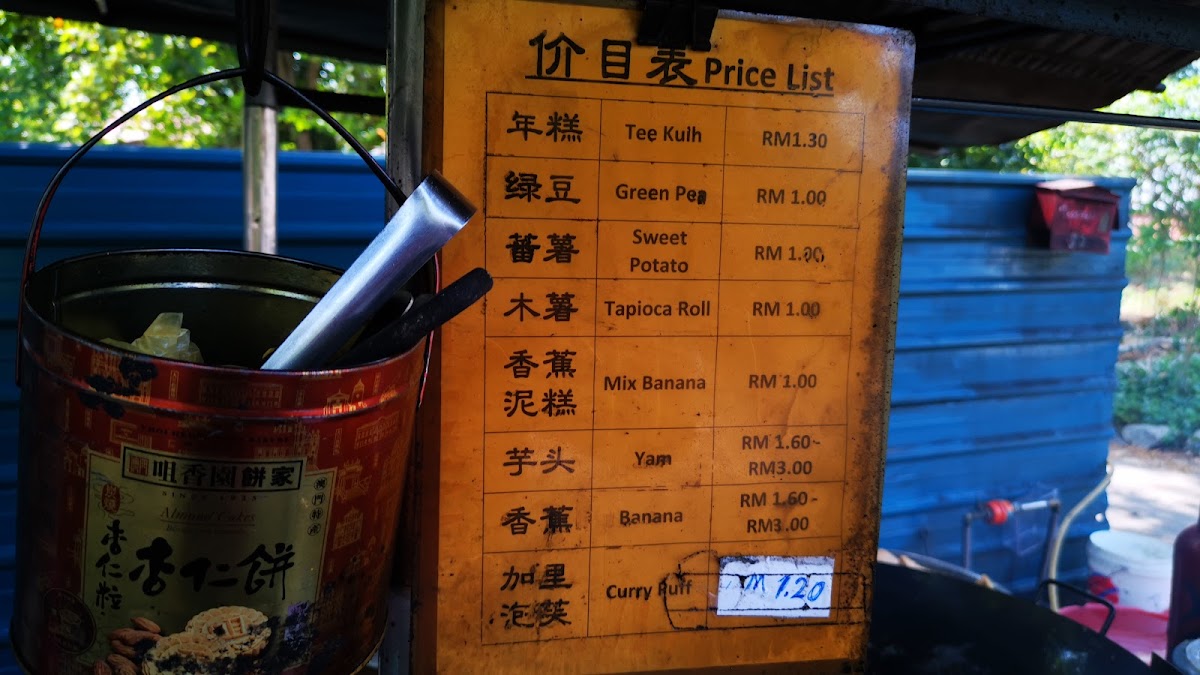 价目表 Price List
年糕 Tee Kuih RM1.30
绿豆 Green Pea RM 1.00
蕃薯 Sweet Potato RM 1.00
木薯 Tapioca Roll RM 1.00
香蕉泥糕 Mix Banana RM 1.00
芋头 Yam RM 1.60~ RM3.00
香蕉 Banana RM 1.60~ RM3.00
加里泡筴 Curry Puff M 1.20
咀香園餅家
SINCE 1935
Almond Cakes
杏仁餅
杏仁粒
澳門特産